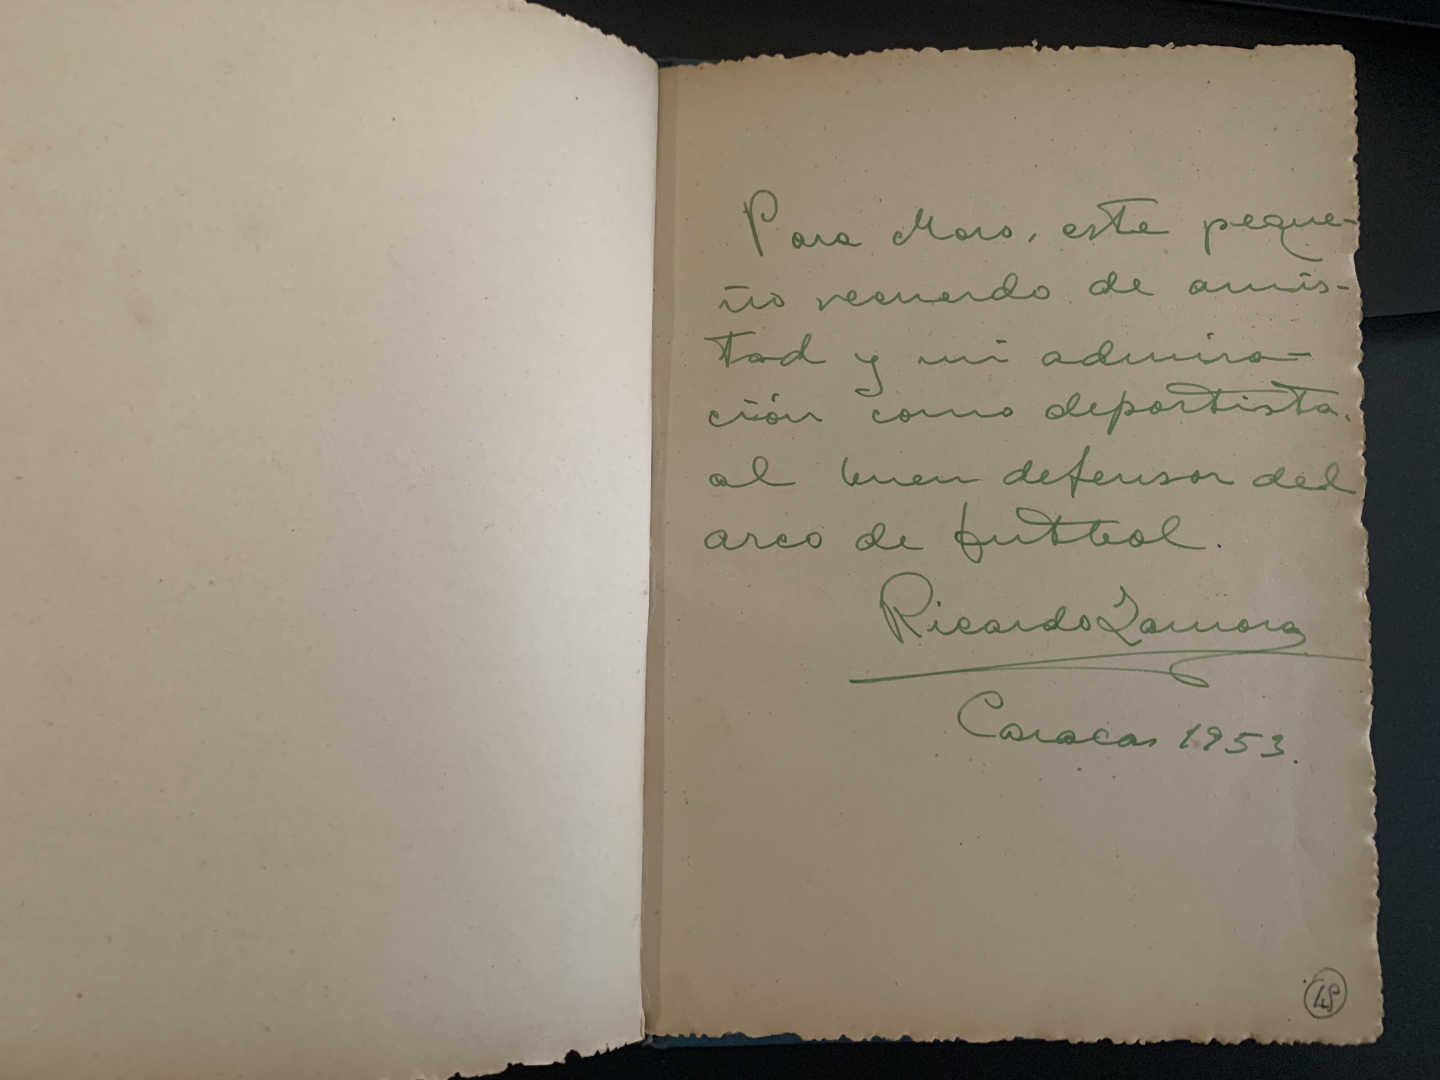 Para Moro, este peque-
ño recuerdo de amis-
tad y mi admira-
ción como deportista.
al buen defensor del
arco de futbol.
Ricardo Zamora
Caracas 1953.
48